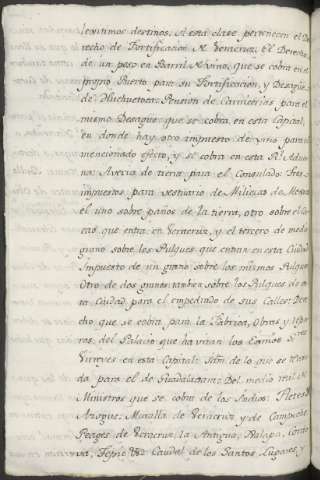 legitimos destinos. A esta clase pertenecen el De
recho de Fortificacion de Veracruz: El Derecho
de un peso en Barril de vino, que se cobra en el
propio Puerto, para su Fortificacion, y Desagüe
de Huehuetoca: Pension de Carnicerias para el
mismo Desague que se cobra en esta Capital,
en donde hay otro impuesto de vino para el
mencionado efecto, y se cobra en esta Rl. Adua
na: Averia de tierra para el Consulado: Tres
impuestos para vestuario de Milicias de Mexico
el uno sobre paños de la tierra, otro sobre el Ca
cao que entra en Veracruz, y el tercero de medio
grano sobre los Pulques que entran en esta Ciudad
Impuesto de un grano sobre los mismos Pulques
Otro de dos granos tambn. sobre los Pulques de es
ta Ciudad para el empedrado de sus Calles: Dere
cho que se cobra para la Fabrica, Obras y
ros del Palacio que havitan los Exmos. Sres.
Virreyes en esta Capital: Idm. de lo que se
da para el de Guadalaxara: Del medio real de
Ministros que se cobra de los Indios: Fletes de
Azogue, Muralla de Veracruz y de Campeche
Peages de Veracruz, la Antigua, Xalapa,
Tepic: Caudal de los Santos Lugares, y